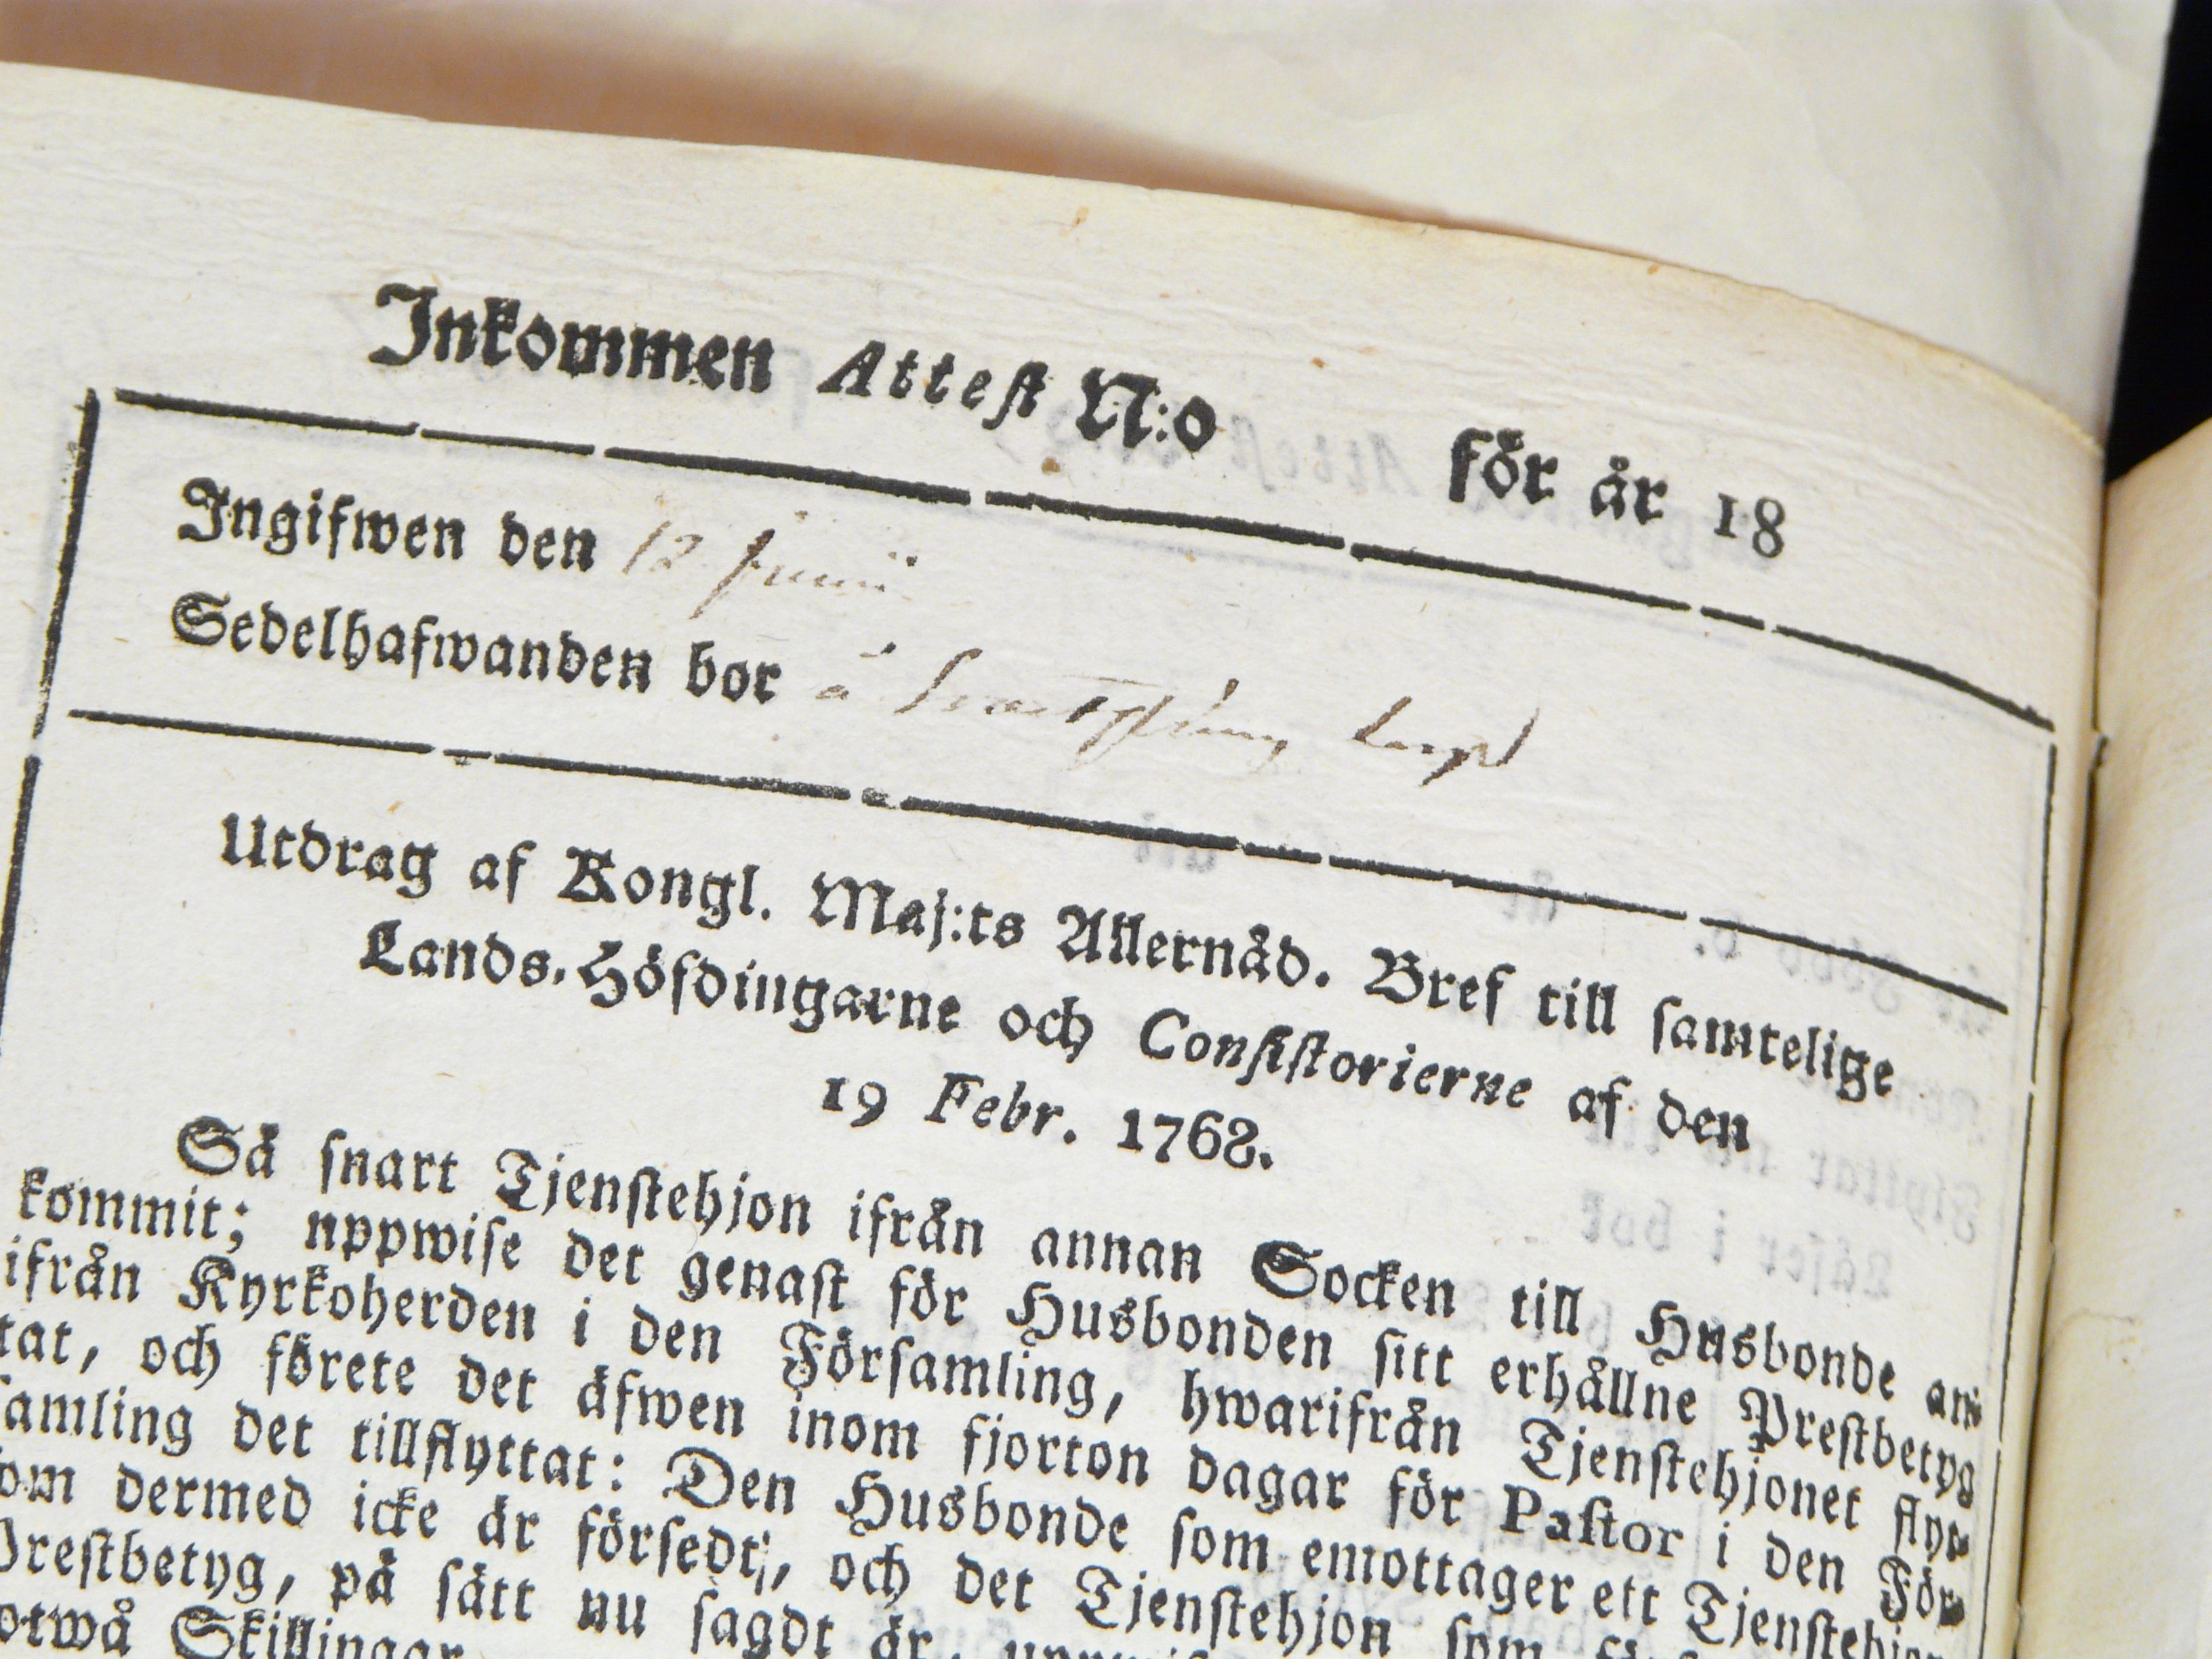 Inkommen Attest N:o för år 18
Ingifwen den 12 Junii
Sedelhafwanden bor å
Utdrag af Kongl. Maj:ts Allernåd. Bref till samtelige
Lands-Höfdingarne och Consistorierne af den
19 Febr. 1768.
Så snart Tjenstehjon ifrån annan Socken till Husbonde an-
kommit; nppwise det genast för Husbonden sitt erhållne Prestbetyg
ifrån Kyrkoherden i den Församling, hwarifrån Tjenstehjonet flyt-
tat, och förete det äfwen inom fjorton dagar för Pastor i den För-
samling det tillflyttat: Den Husbonde som emottager ett Tjenstehjon
om dermed icke är försedt, och det Tjenstehjon som
Prestbetyg, på sätt nu sagdt är,
otwå Skillingar